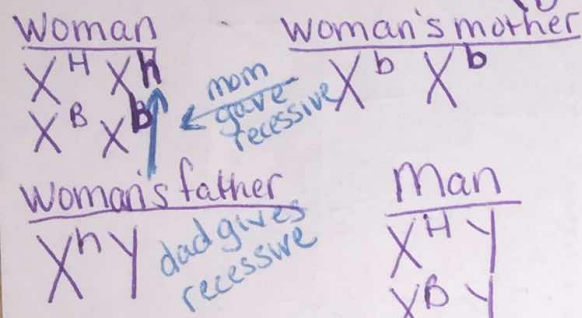 Woman
X^H X^h
X^B X^b
mom
gave
recessive
Woman's mother
X^b X^b
Woman's father
X^h Y
dad gives
recessive
Man
X^H Y
X^B Y